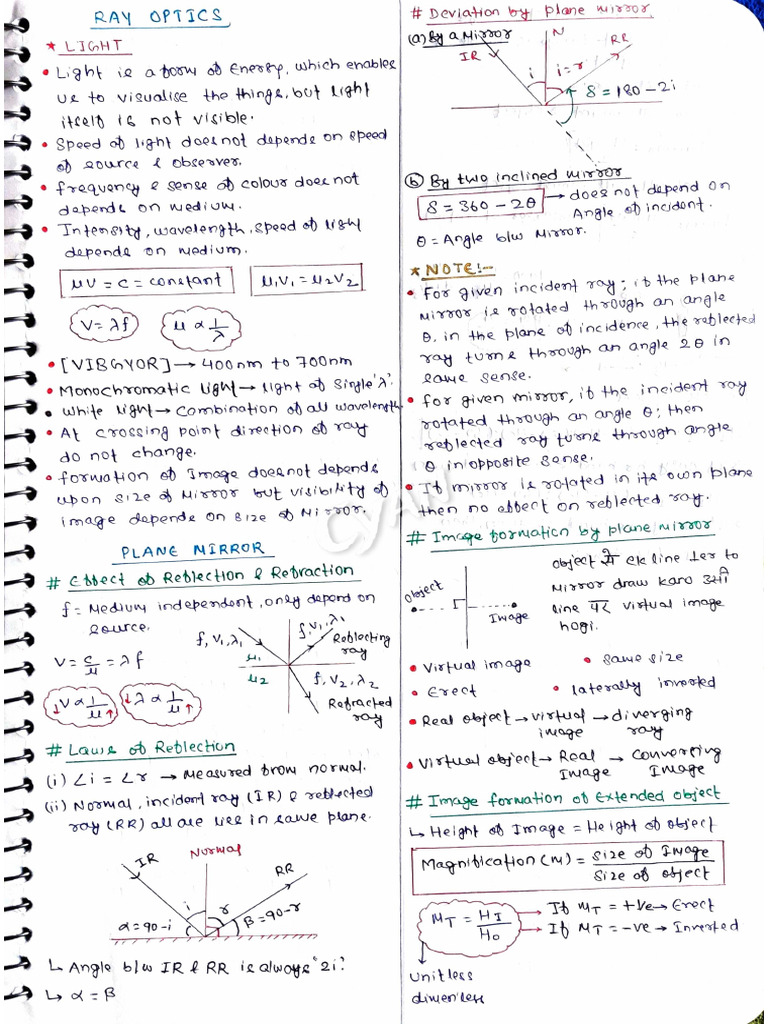 RAY OPTICS
* LIGHT
• Light is a form of Energy, which enables
us to visualise the things, but light
itself is not visible.
• Speed of light does not depends on speed
of source & observer.
• frequency & sense of colour does not
depends on medium.
• Intensity, wavelength, speed of light
depends on medium.
μv = c = constant
μ₁v₁ = μ₂v₂
v = λf
μ ∝ 1/λ
• [VIBGYOR] → 400nm to 700nm
• Monochromatic light → light of single 'λ'.
• White light → combination of all wavelength.
• At crossing point direction of ray
do not change.
• formation of Image does not depends
upon size of Mirror but visibility of
image depends on size of Mirror.
PLANE MIRROR
# Effect of Reflection & Refraction
f = Medium independent, only depend on
source.
v = c/μ = λf
↓v ∝ 1/μ↑
↓λ ∝ 1/μ↑
f, v₁, λ₁
f, v₁, λ₁
Reflecting
ray
μ₁
μ₂
f, v₂, λ₂
Refracted
ray
# Laws of Reflection
(i) ∠i = ∠r → Measured from normal.
(ii) Normal, incident ray (IR) & reflected
ray (RR) all are lies in same plane.
Normal
IR
RR
i
r
α=90-i
β=90-r
↳ Angle b/w IR & RR is always "2i".
↳ α = β
# Deviation by plane mirror
(a) By a Mirror
N
IR
RR
i
i=r
δ = 180 - 2i
(b) By two inclined mirror
δ = 360 - 2θ → does not depend on
Angle of incident.
θ = Angle b/w Mirror.
* NOTE!--
• for given incident ray; if the plane
mirror is rotated through an angle
θ, in the plane of incidence, the reflected
ray turns through an angle 2θ in
same sense.
• for given mirror, if the incident ray
rotated through an angle θ; then
reflected ray turns through angle
θ in opposite sense.
• If mirror is rotated in its own plane
then no effect on reflected ray.
# Image formation by plane mirror
object
Image
object से ek line ⊥er to
Mirror draw karo उसी
line पर virtual image
hogi.
• Virtual image
• same size
• Erect
• laterally inverted
• Real object → virtual → diverging
image ray
• Virtual object → Real → Converging
Image Image
# Image formation of Extended object
↳ Height of Image = Height of object
Magnification (m) = Size of Image / Size of object
M_T = H_I / H_O
→ If M_T = +ve → Erect
→ If M_T = -ve → Inverted
Unitless
dimenless
CYAN